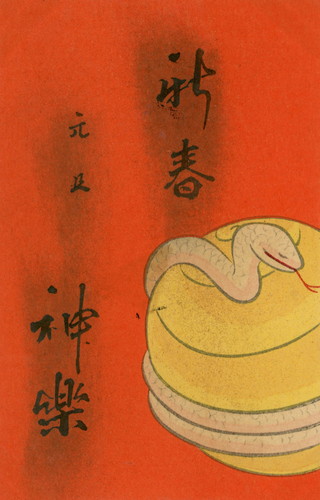 新春
元旦
神樂